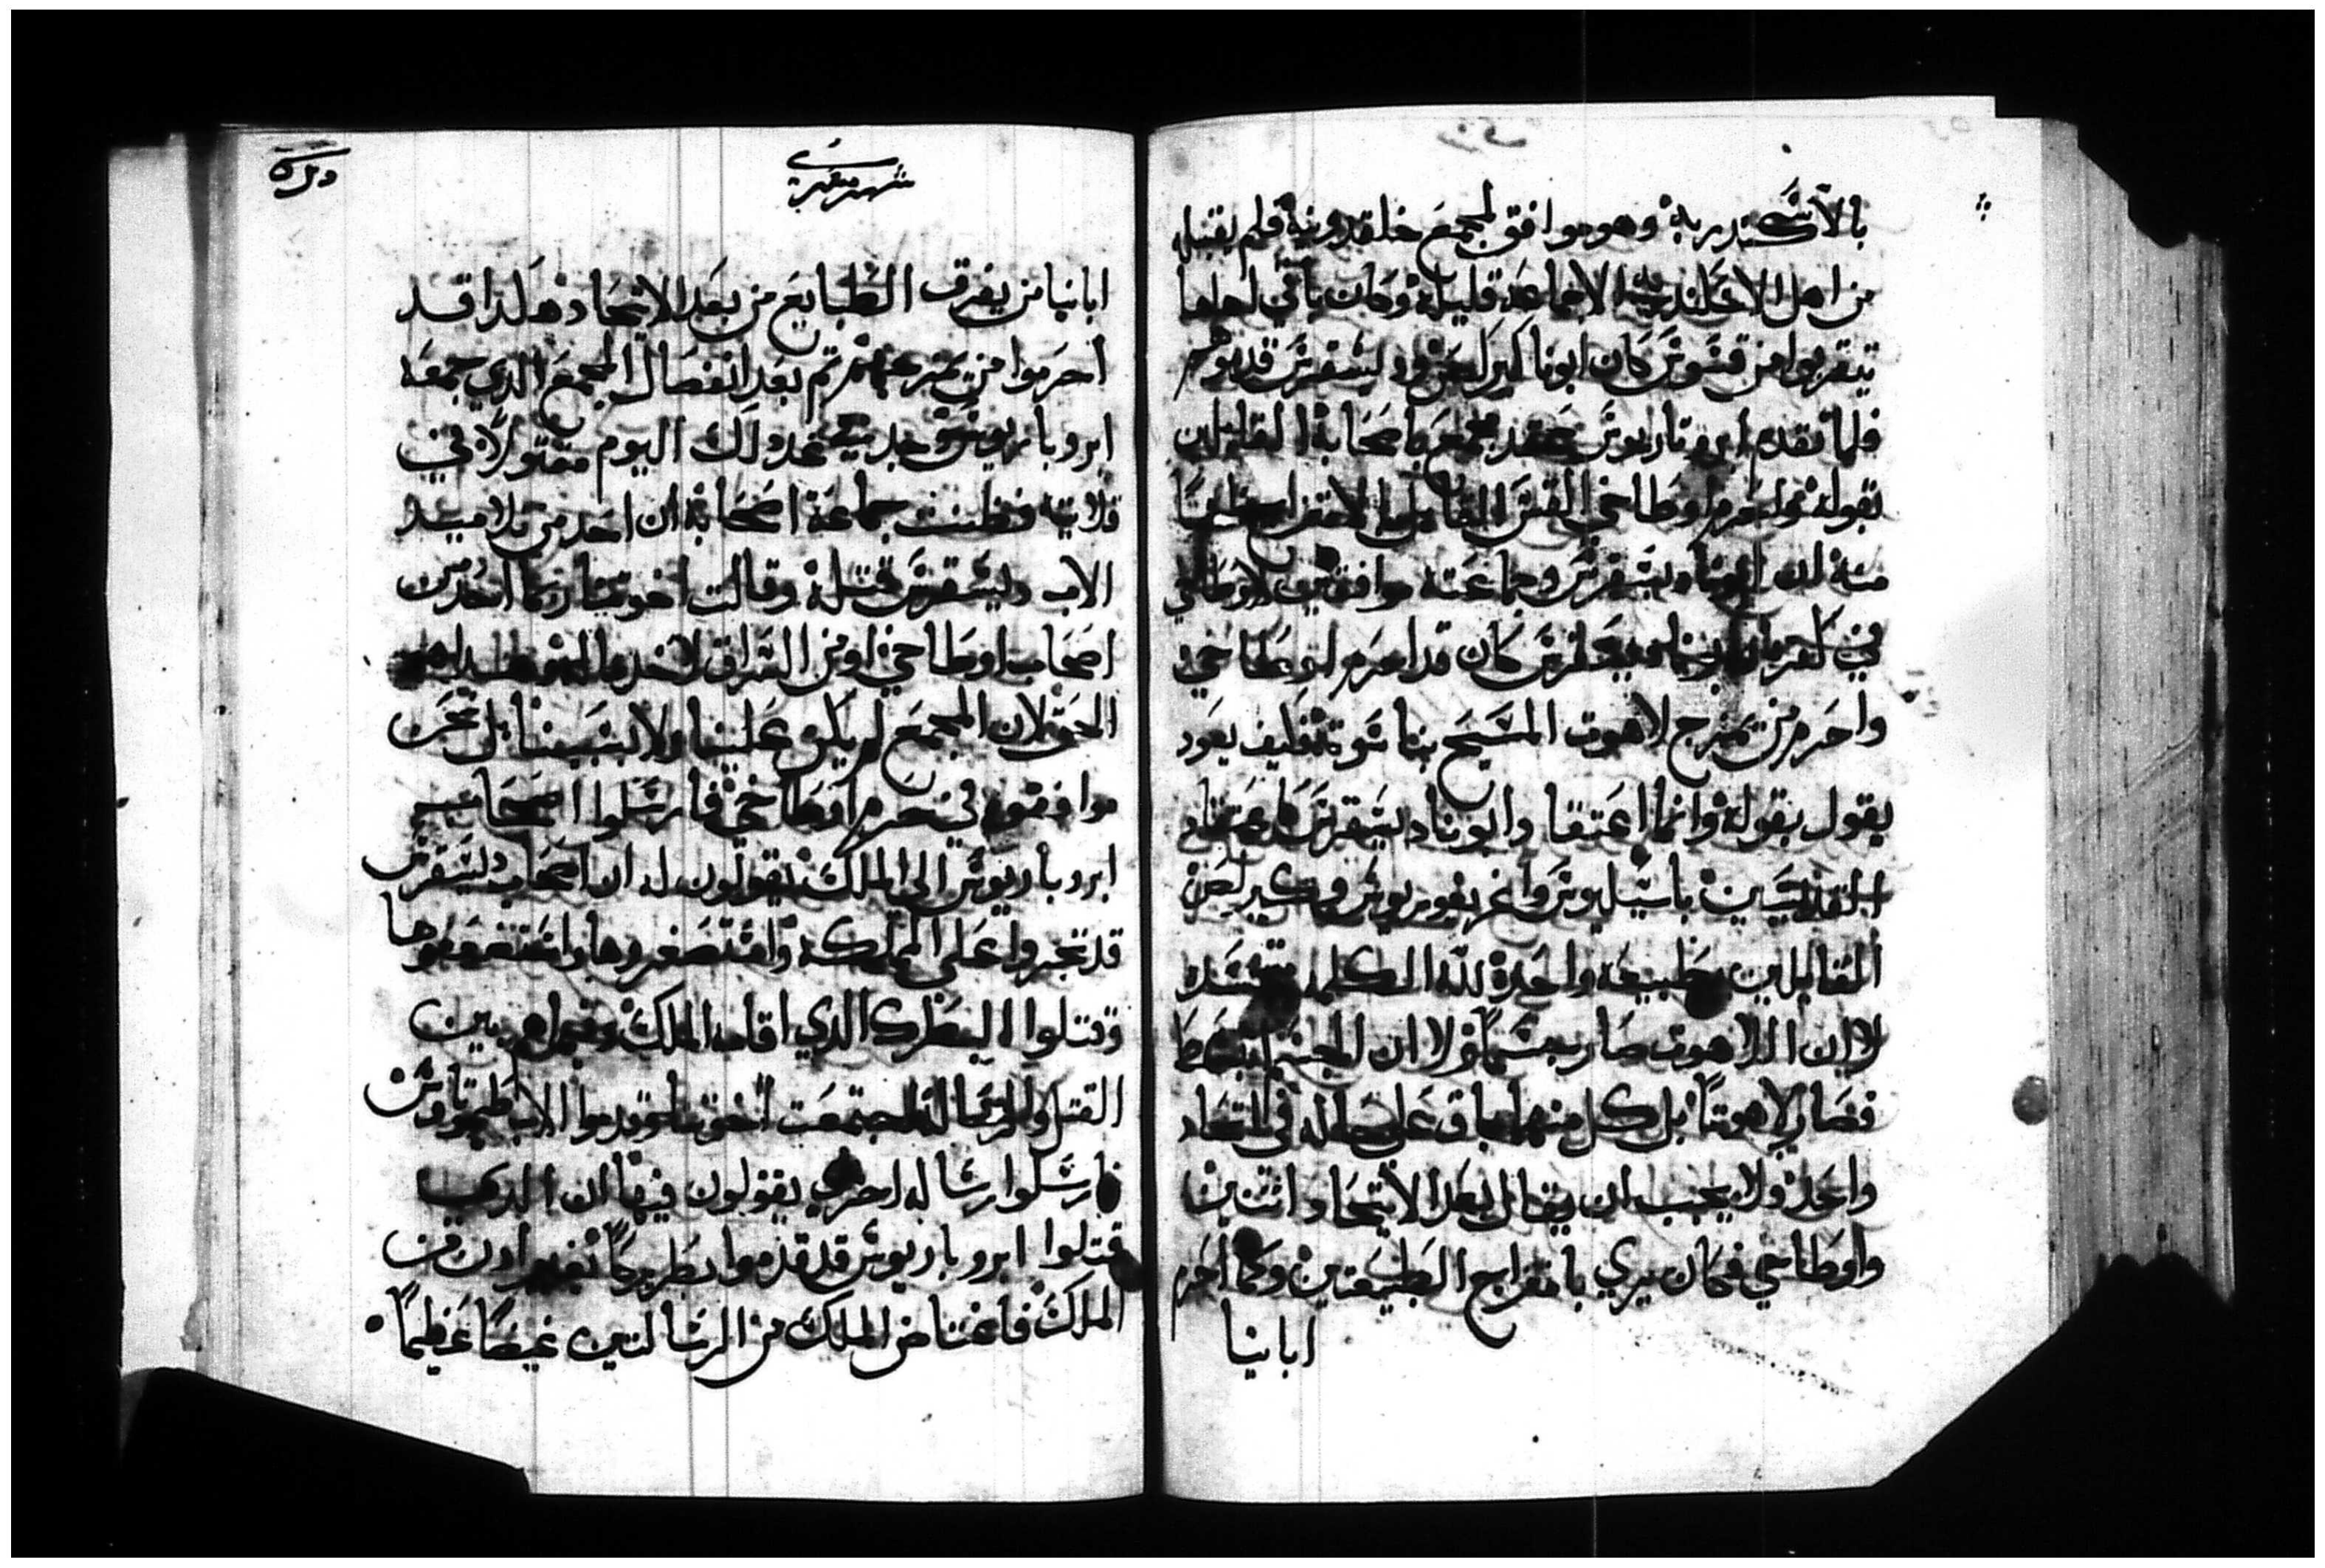 بالاسكندرية وهو موافق لمجمع خلقدونية فلم يقبله
من اهل الاسكندرية الا جماعة قليلة وكان باقي اهلها
يتقربوا من قسوس كان ابونا كيرلص ود يسقرس قدموهم
فلما تقدم ابروتاريوس عقد مجمع باصحابه القايلين
بقوله واحرم اوطاخي القس القايل بالامتزاج ظنا
منه ان ابونا ديسقرس وجماعته موافقين لاوطاخي
في كفره ابونا ديسقرس كان قد احرم اوطاخي
واحرم من يمزج لاهوت المسيح بناسوته فكيف يعود
يقول بقوله وانما اعتقاد ابونا ديسقرس كاعتقاد
القديسين باسيليوس واغريغوريوس وكيرلص
القايلين بطبيعة واحدة لله الكلمة متجسدة
لا ان اللاهوت صار جسما ولا ان الجسم انبسط
فصار لاهوتا بل كل منهما باق على حاله في اتحاد
واحد ولا يجب ان يقال بعد الاتحاد اثنين
واوطاخي فكان يري بامتزاج الطبيعتين وكما احرم
ابانيا
شهر مسري
ابانيا من يفرق الطبايع من بعد الاتحاد هكدا قد
احرموا من يمزجهم ثم بعد انفصال المجمع الدي جمعه
ابروباريوس وجد في غد دلك اليوم مقتولا في
قلايته فظنت جماعة اصحابه ان احد من تلاميد
الاب ديسقرس قتله وقالت اخوتنا ربما احد من
اصحاب اوطاخي او من السراق لاخد ماله وهدا هو
الحق لان المجمع لم يكن علينا ولا بسببنا بل نحن
موافقوه في حرم اوطاخي فارسلوا اصحاب
ابروباريوس الى الملك يقولون له ان اصحاب ديسقرس
قد تجبروا على المملكة واستصغروها واستضعفوها
وقتلوا البطرك الدي اقامه الملك
القتل والرسالة اجتمعت اخوتنا وقدموا الاب طيمتاوس
فارسلوا رسالة اخري يقولون فيها ان الدي
قتلوا ابروباريوس قد قدموا بطريركا بغير ادن من
الملك فاغتاض الملك من الرسالتين غيضا عظيما